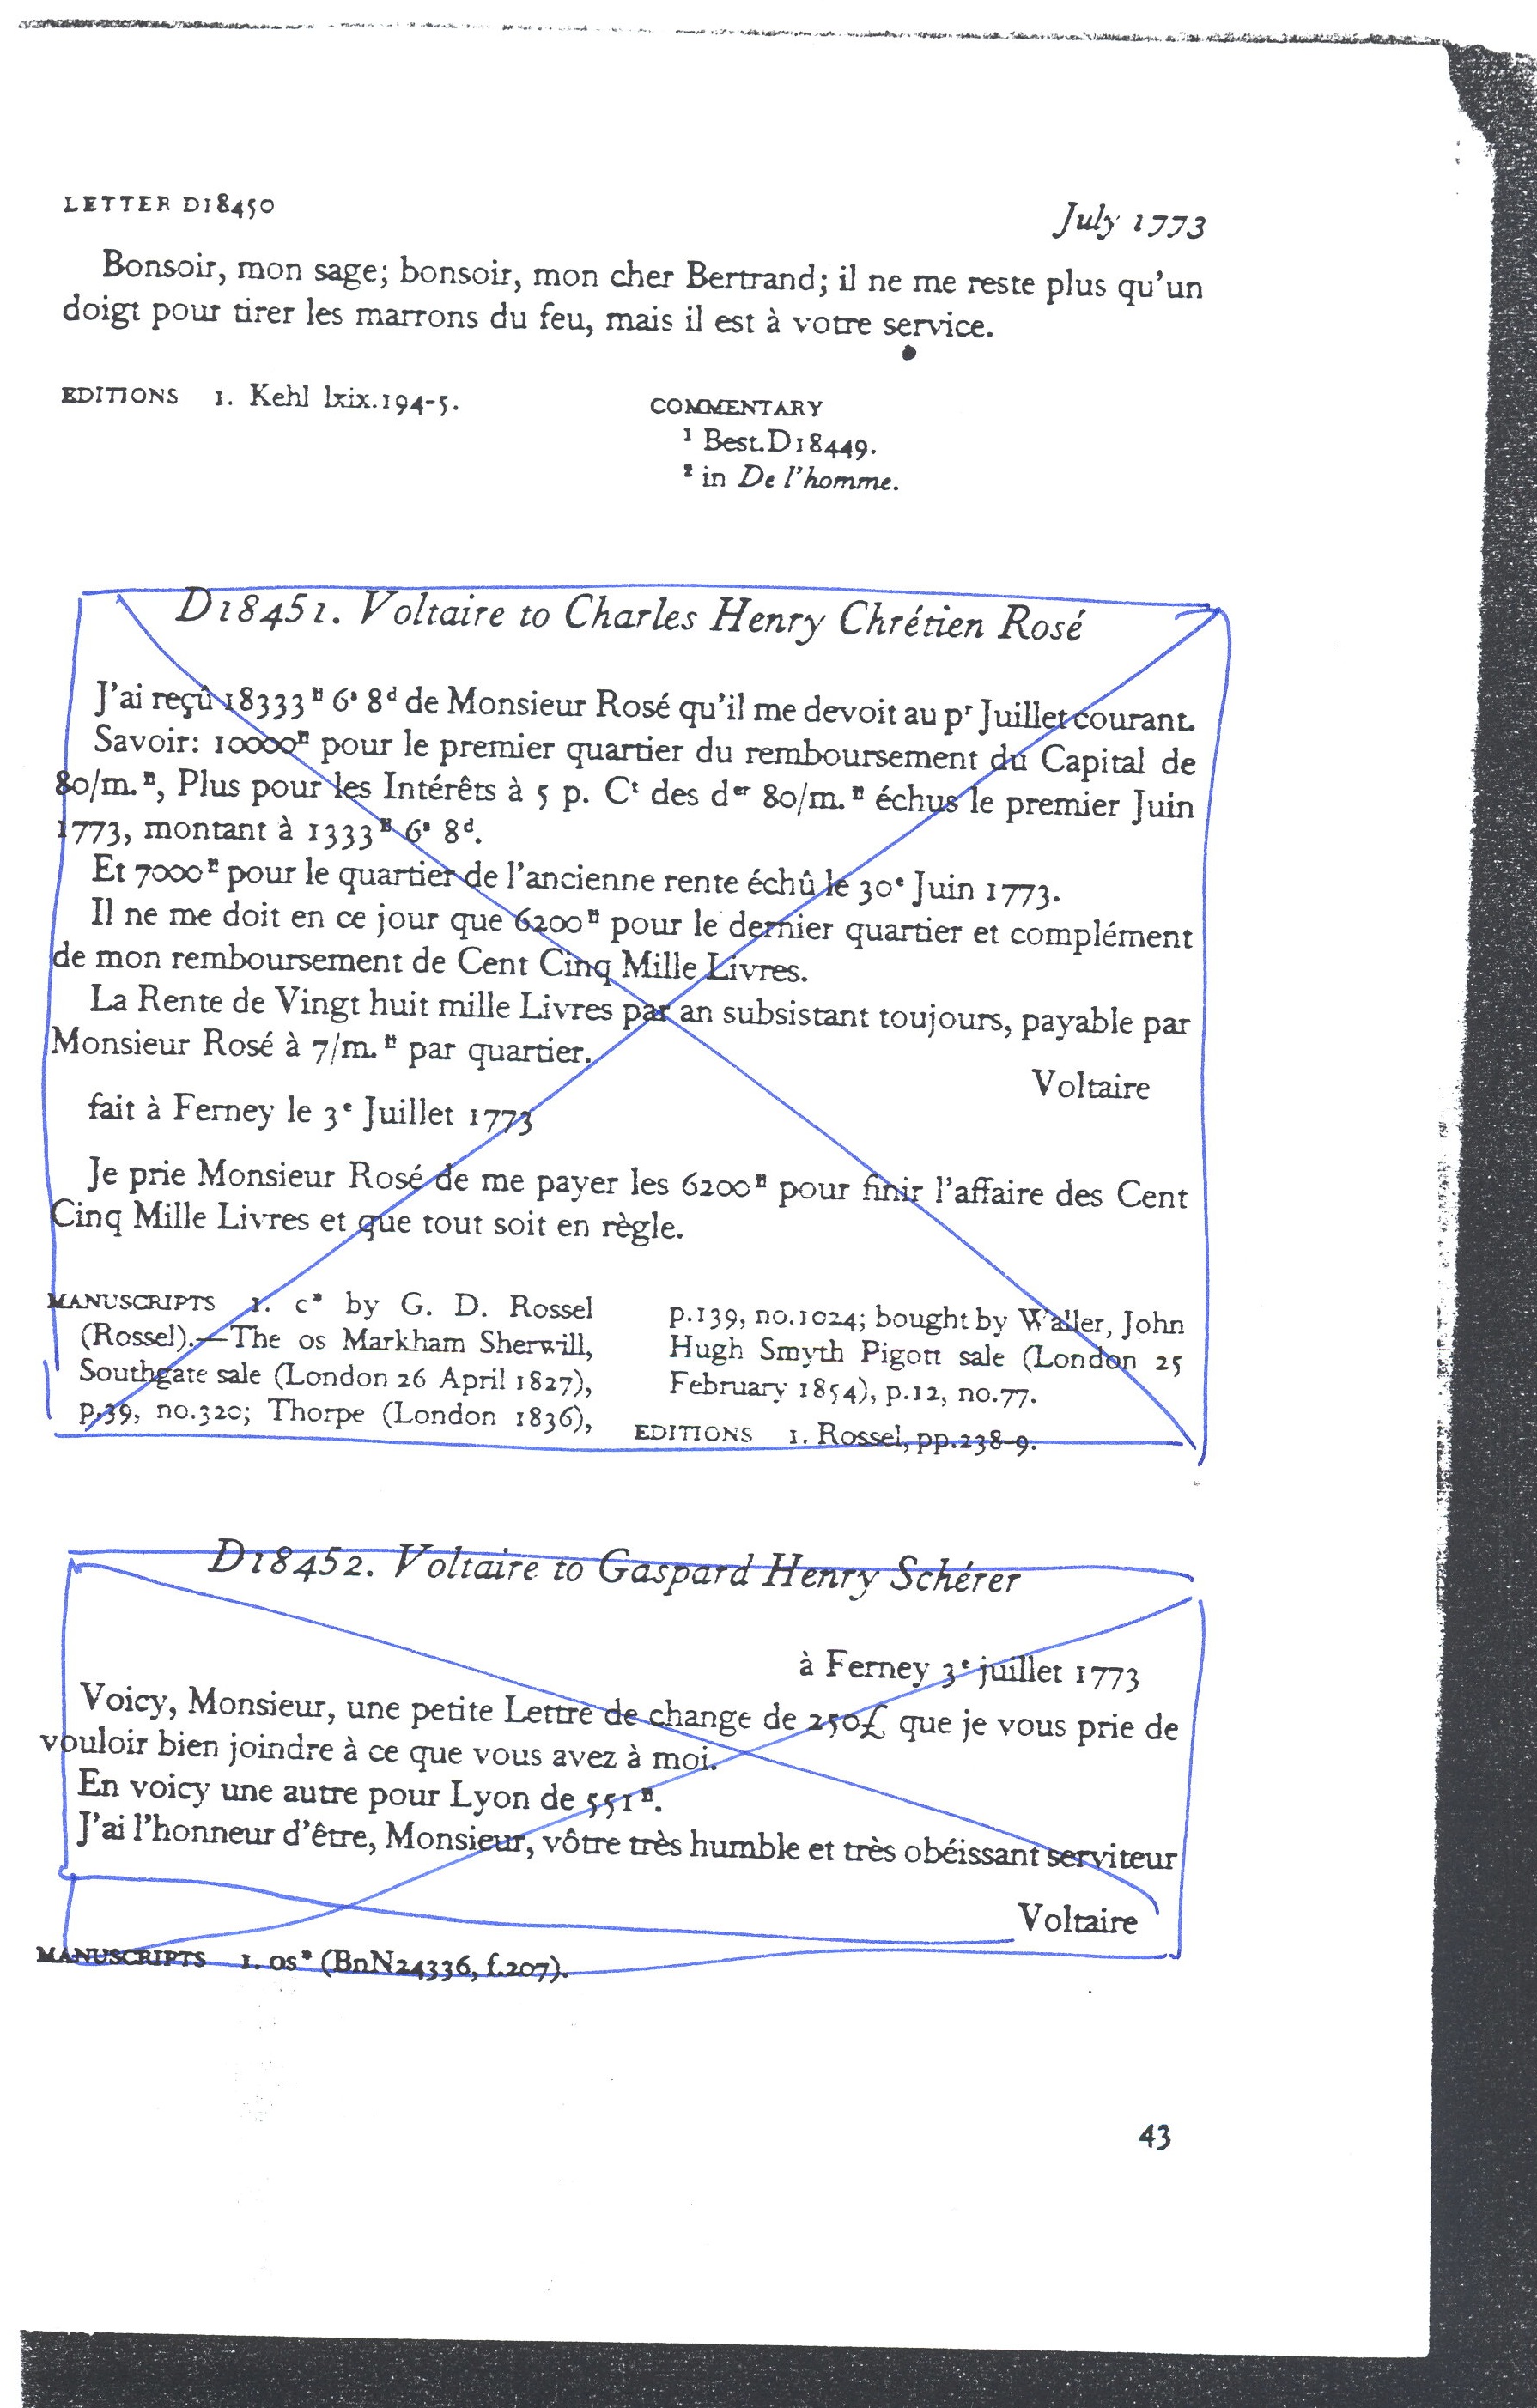 LETTER D18450
July 1773
Bonsoir, mon sage; bonsoir, mon cher Bertrand; il ne me reste plus qu'un
doigt pour tirer les marrons du feu, mais il est à votre service.
EDITIONS 1. Kehl lxix.194-5.
COMMENTARY
¹ Best.D18449.
² in De l'homme.
D18451. Voltaire to Charles Henry Chrétien Rosé
J'ai reçû 18333ᴴ 6ˢ 8ᵈ de Monsieur Rosé qu'il me devoit au pʳ Juillet courant.
Savoir: 10000ᴴ pour le premier quartier du remboursement du Capital de
80/m.ᴴ, Plus pour les Intérêts à 5 p. Cᵗ des dᵉʳ 80/m.ᴴ échus le premier Juin
1773, montant à 1333ᴴ 6ˢ 8ᵈ.
Et 7000ᴴ pour le quartier de l'ancienne rente échû le 30ᵉ Juin 1773.
Il ne me doit en ce jour que 6200ᴴ pour le dernier quartier et complément
de mon remboursement de Cent Cinq Mille Livres.
La Rente de Vingt huit mille Livres par an subsistant toujours, payable par
Monsieur Rosé à 7/m.ᴴ par quartier.
Voltaire
fait à Ferney le 3ᵉ Juillet 1773
Je prie Monsieur Rosé de me payer les 6200ᴴ pour finir l'affaire des Cent
Cinq Mille Livres et que tout soit en règle.
MANUSCRIPTS 1. c* by G. D. Rossel
(Rossel).—The os Markham Sherwill,
Southgate sale (London 26 April 1827),
p.39, no.320; Thorpe (London 1836),
p.139, no.1024; bought by Waller, John
Hugh Smyth Pigott sale (London 25
February 1854), p.12, no.77.
EDITIONS 1. Rossel, pp.238-9.
D18452. Voltaire to Gaspard Henry Schérer
à Ferney 3ᵉ juillet 1773
Voicy, Monsieur, une petite Lettre de change de 250£ que je vous prie de
vouloir bien joindre à ce que vous avez à moi.
En voicy une autre pour Lyon de 551ᴴ.
J'ai l'honneur d'être, Monsieur, vôtre très humble et très obéissant serviteur
Voltaire
MANUSCRIPTS 1. os* (BnN24336, f.207).
43